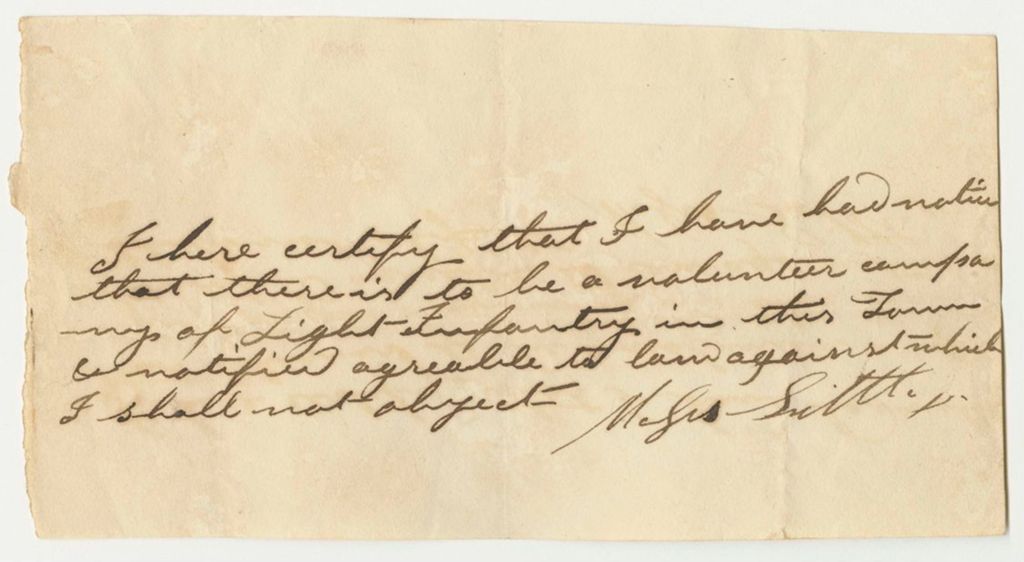 I here certify that I have had notice
that there is to be a volunteer compa
ny of Light Infantry in this Town
& notified agreable to law against which
I shall not object
Moses Little